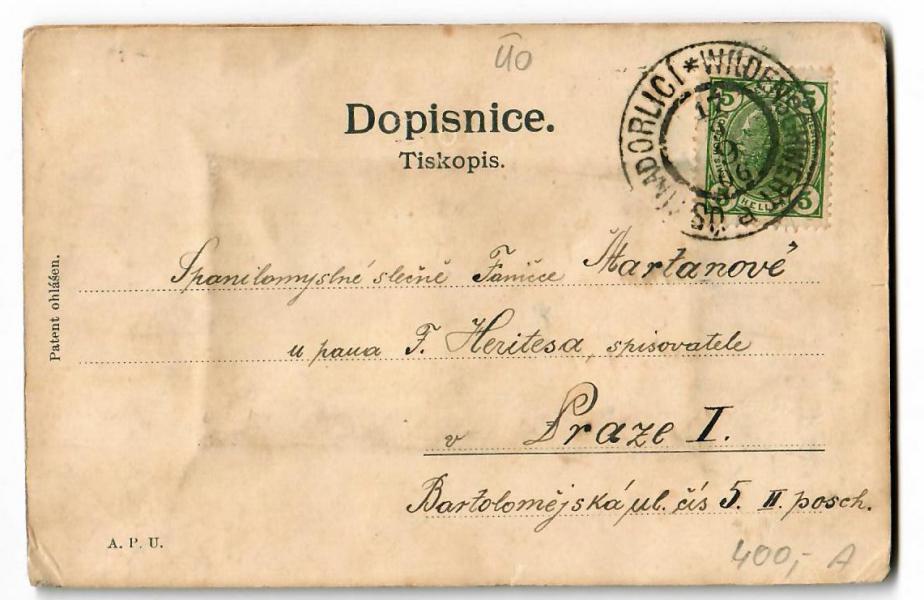 ÚO
Dopisnice.
Tiskopis.
ÚSTÍ NAD ORLICÍ * WILDENSCHWERT
17
5 5
HELLER 5
Spanilomyslné slečně Faničce Martanové
u pana F. Heritesa, spisovatele
v Praze I.
Bartolomějská ul. čís 5. II. posch.
Patent ohlášen.
A. P. U.
400,- A